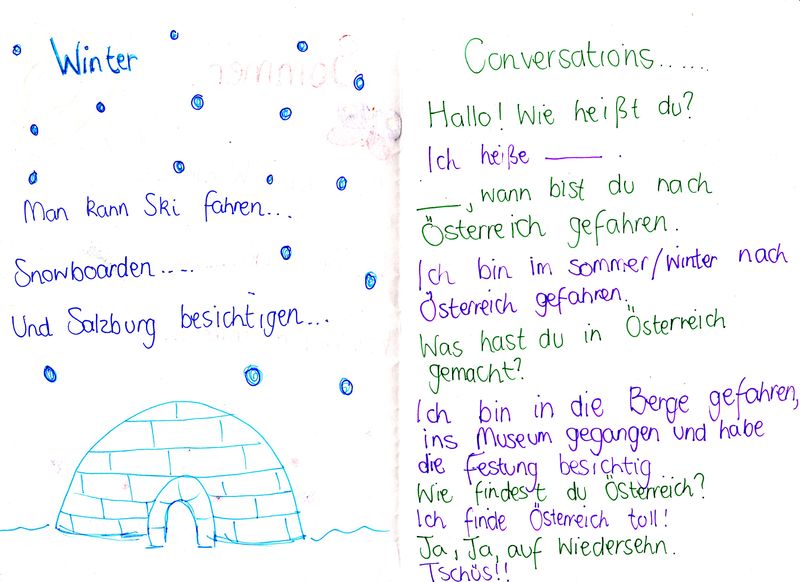 Winter
Man kann Ski fahren...
Snowboarden....
Und Salzburg besichtigen...
Conversations......
Hallo! Wie heißt du?
Ich heiße ____ .
____, wann bist du nach
Österreich gefahren.
Ich bin im Sommer/Winter nach
Österreich gefahren.
Was hast du in Österreich
gemacht?
Ich bin in die Berge gefahren,
ins Museum gegangen und habe
die Festung besichtig
Wie findest du Österreich?
Ich finde Österreich toll!
Ja, Ja, auf Wiedersehn.
Tschüs!!